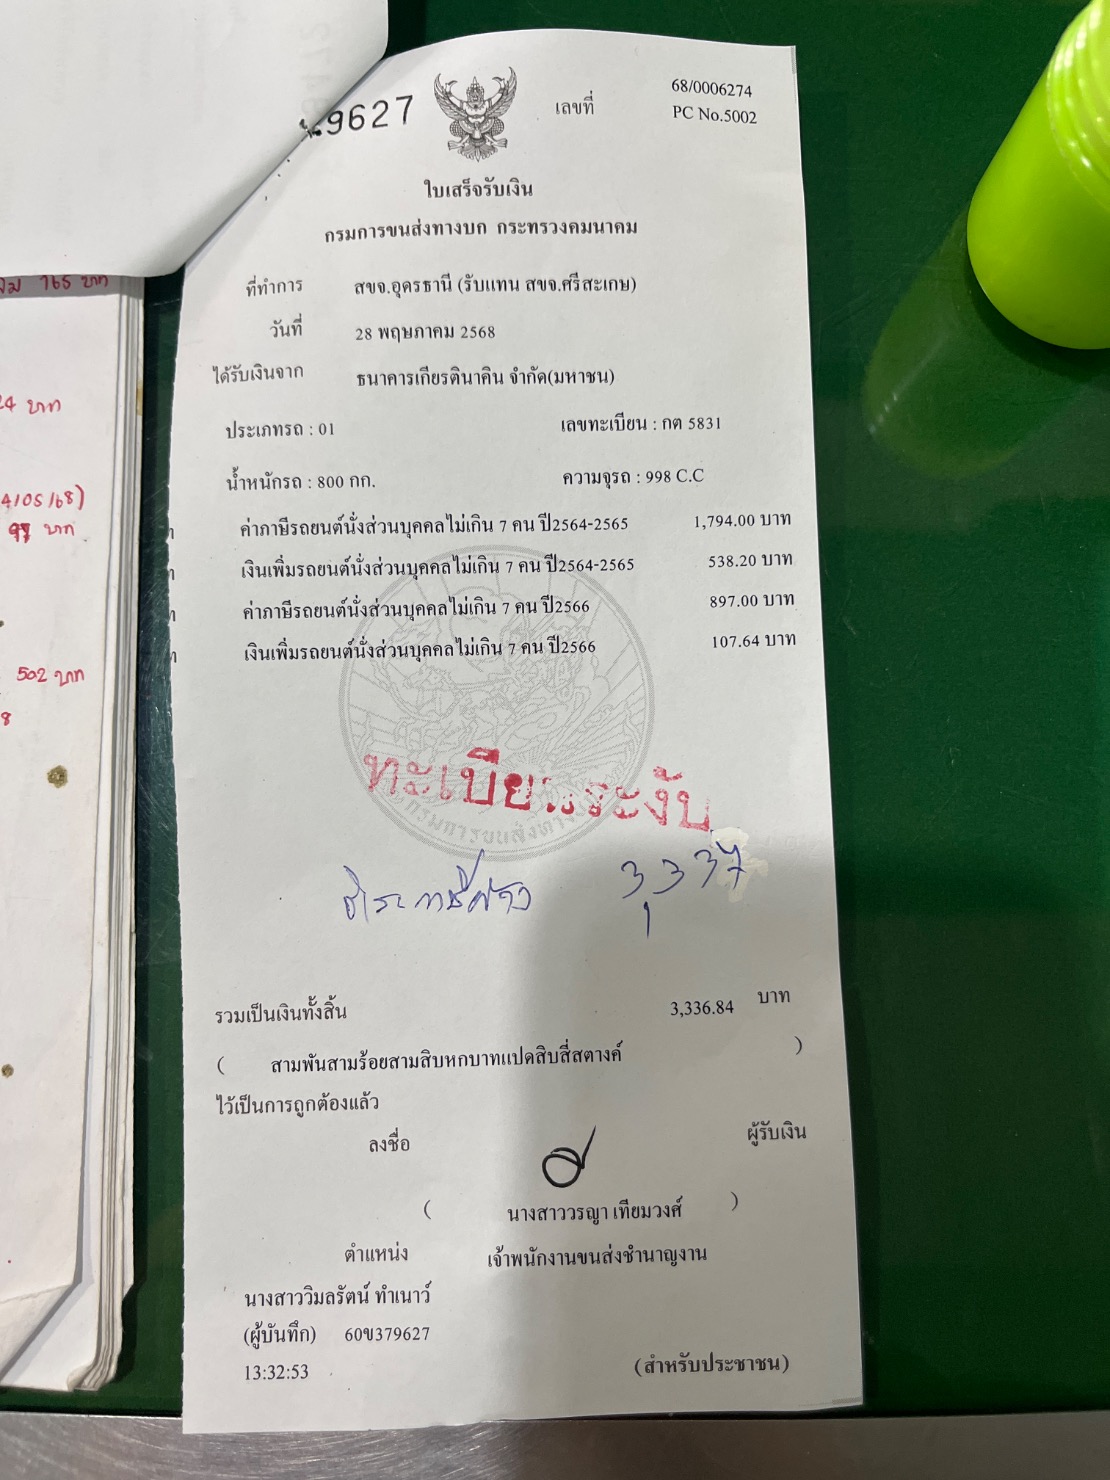 9627
เลขที่ 68/0006274
PC No.5002
ใบเสร็จรับเงิน
กรมการขนส่งทางบก กระทรวงคมนาคม
ที่ทำการ สขจ.อุดรธานี (รับแทน สขจ.ศรีสะเกษ)
วันที่ 28 พฤษภาคม 2568
ได้รับเงินจาก ธนาคารเกียรตินาคิน จำกัด(มหาชน)
ประเภทรถ : 01 เลขทะเบียน : กต 5831
น้ำหนักรถ : 800 กก. ความจุรถ : 998 C.C
ค่าภาษีรถยนต์นั่งส่วนบุคคลไม่เกิน 7 คน ปี2564-2565 1,794.00 บาท
เงินเพิ่มรถยนต์นั่งส่วนบุคคลไม่เกิน 7 คน ปี2564-2565 538.20 บาท
ค่าภาษีรถยนต์นั่งส่วนบุคคลไม่เกิน 7 คน ปี2566 897.00 บาท
เงินเพิ่มรถยนต์นั่งส่วนบุคคลไม่เกิน 7 คน ปี2566 107.64 บาท
ทะเบียนระงับ
กรมการขนส่งทาง
ชำระภาษีค้าง 3,337
รวมเป็นเงินทั้งสิ้น 3,336.84 บาท
( สามพันสามร้อยสามสิบหกบาทแปดสิบสี่สตางค์ )
ไว้เป็นการถูกต้องแล้ว
ลงชื่อ ผู้รับเงิน
( นางสาววรญา เทียมวงศ์ )
ตำแหน่ง เจ้าพนักงานขนส่งชำนาญงาน
นางสาววิมลรัตน์ ทำเนาว์
(ผู้บันทึก) 60ข379627
13:32:53 (สำหรับประชาชน)
165 บาท
24 บาท
4/05/68)
97 บาท
502 บาท
8